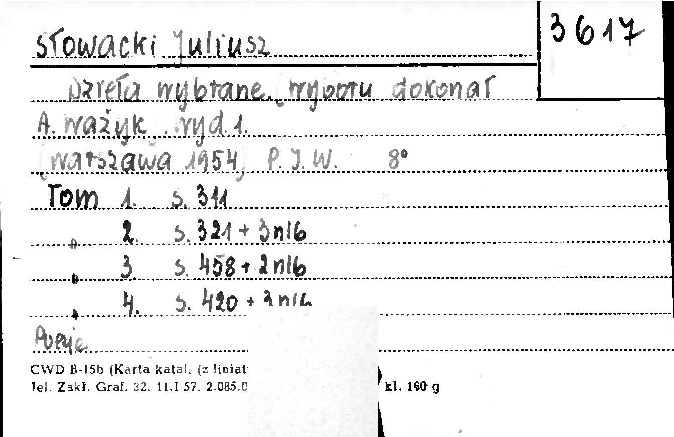 Słowacki Juliusz
3617
Dzieła wybrane, wyboru dokonał
A. Ważyk. Wyd 1.
(Warszawa 1954) P.I.W. 8°
Tom 1. s. 311
" 2. s. 321 + 3 nlb
" 3 s. 458 + 2 nlb
" 4. s. 420 + 3 nlb
Poezje
CWD B-15b (Karta katal. (z liniat
Jel. Zakł. Graf. 32. 11.I 57. 2.085.0 kl. 160 g